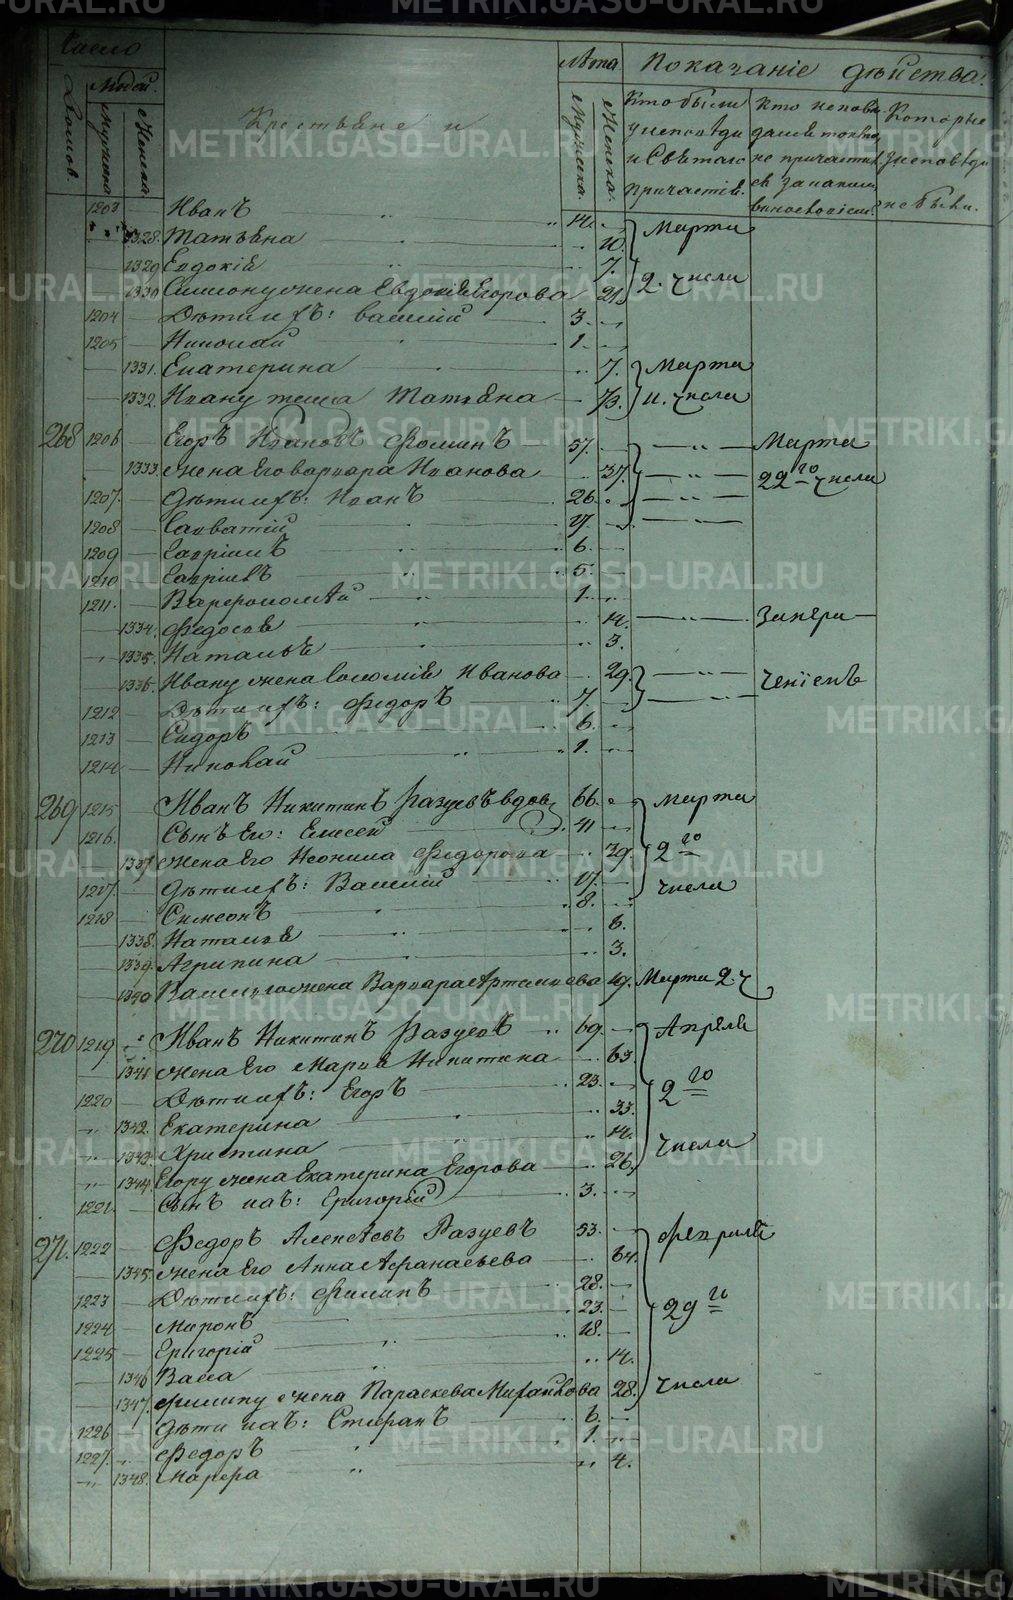 Число
Людей.
Домов.
Мужеска
Женска.
Крестьяне и
Лѣта
Мужеска.
Женска.
Показаніе дѣйства.
Кто были
у исповѣди
и Святаго
причастія.
Кто исповѣ
дался токмо,
не причастил
ся
Которые
у исповѣди
не были.
1203 — Иванъ — 14. — Марта
1328. Татьяна — 10.
1329 Евдокія — 7.
1330 Симеону жена Евдокія Егорова 21. 2. числа
1204 — Дѣти ихъ: Василій — 3.
1205 — Николай — 1.
1331. Екатерина — 7. Марта
1332. Ивану теща Татьяна — 73. числа
268 1206 — Егоръ Ивановъ Фоминъ 57. — Марта
1333 жена Его Варвара Иванова 37. — 22го числа
1207. — Дѣти ихъ: Иванъ — 26.
1208 — Савватій — 17.
1209 — Гавріилъ — 6.
1210 — Гавріилъ — 5.
1211. — Варфоломѣй — 1.
1334. Федосья — 14. —
1335. Наталья — 3.
1336. Ивану жена Соломія Иванова — 29.
1212 — Дѣти ихъ: Федоръ 7.
1213 — Сидоръ — 6.
1214 — Николай — 1.
269 1215 — Иванъ Никитинъ Разуевъ вдов 66. Марта
1216. — Сынъ Его: Елисей — 41
1337 жена Его Неонила Федорова 39. 2го
1217. — Дѣти ихъ: Василій — 17. — числа
1218 — Симеонъ — 8.
1338. Наталья — 6.
1339. Агрипина — 3.
1340 Василью жена Варвара 19. Марта 2. ч
270 1219. Иванъ Никитинъ Разуевъ 69. — Апреля
1341 жена Его Марья Никитина — 63.
1220 — Дѣти ихъ: Егоръ 23. — 2го
1342. Екатерина — 33.
1343. Христина — 14. числа
1344. Егору жена Екатерина Егорова — 26.
1221. — Сынъ ихъ: Григорій 3.
271. 1222 — Федоръ Алексѣевъ Разуевъ 53. — Февраля
1345. жена Его Анна Афанасьева — 64.
1223 — Дѣти ихъ: Филипъ 28. —
1224 — Миронъ — 23. — 29го
1225 — Григорій — 18. —
1346 Васса — 14.
1347. Филипу жена Параскева 28. числа
1226 — Дѣти ихъ: Стефанъ — 6.
1227. — Федоръ — 1.
1348. Марфа — 4.
METRIKI.GASO-URAL.RU